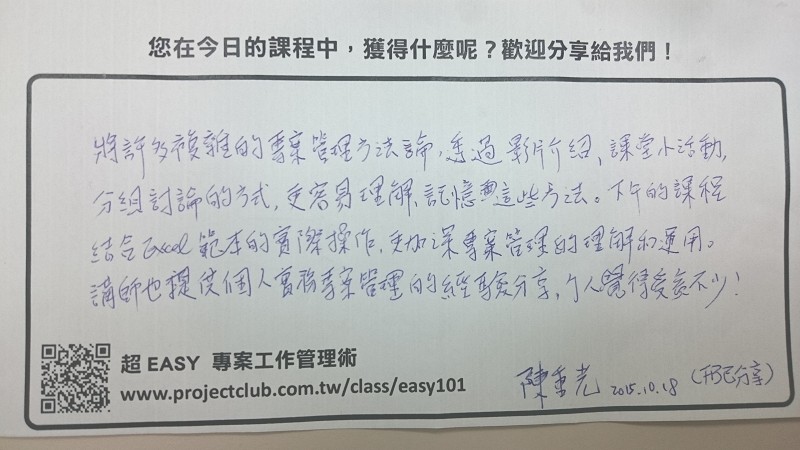 您在今日的課程中，獲得什麼呢？歡迎分享給我們！
將許多複雜的專案管理方法論，透過影片介紹、課堂小活動，
分組討論的方式，更容易理解、記憶這些方法。下午的課程
結合Excel範本的實際操作，更加深專案管理的理解和運用。
講師也提供個人實務專案管理的經驗分享，個人覺得受益不少！
超EASY 專案工作管理術
www.projectclub.com.tw/class/easy101
陳重光 2015.10.18 (分享)